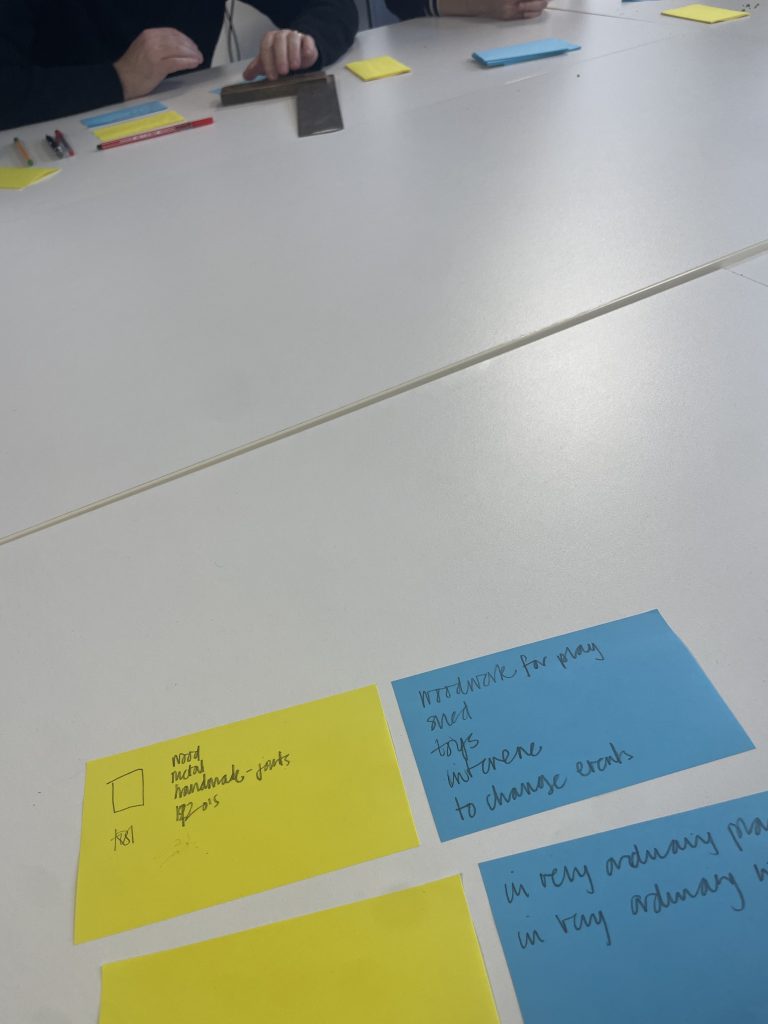 wood
metal
handmade - joints
tool
woodwork for play
shed
toys
intervene
to change events
in very ordinary
in very ordinary